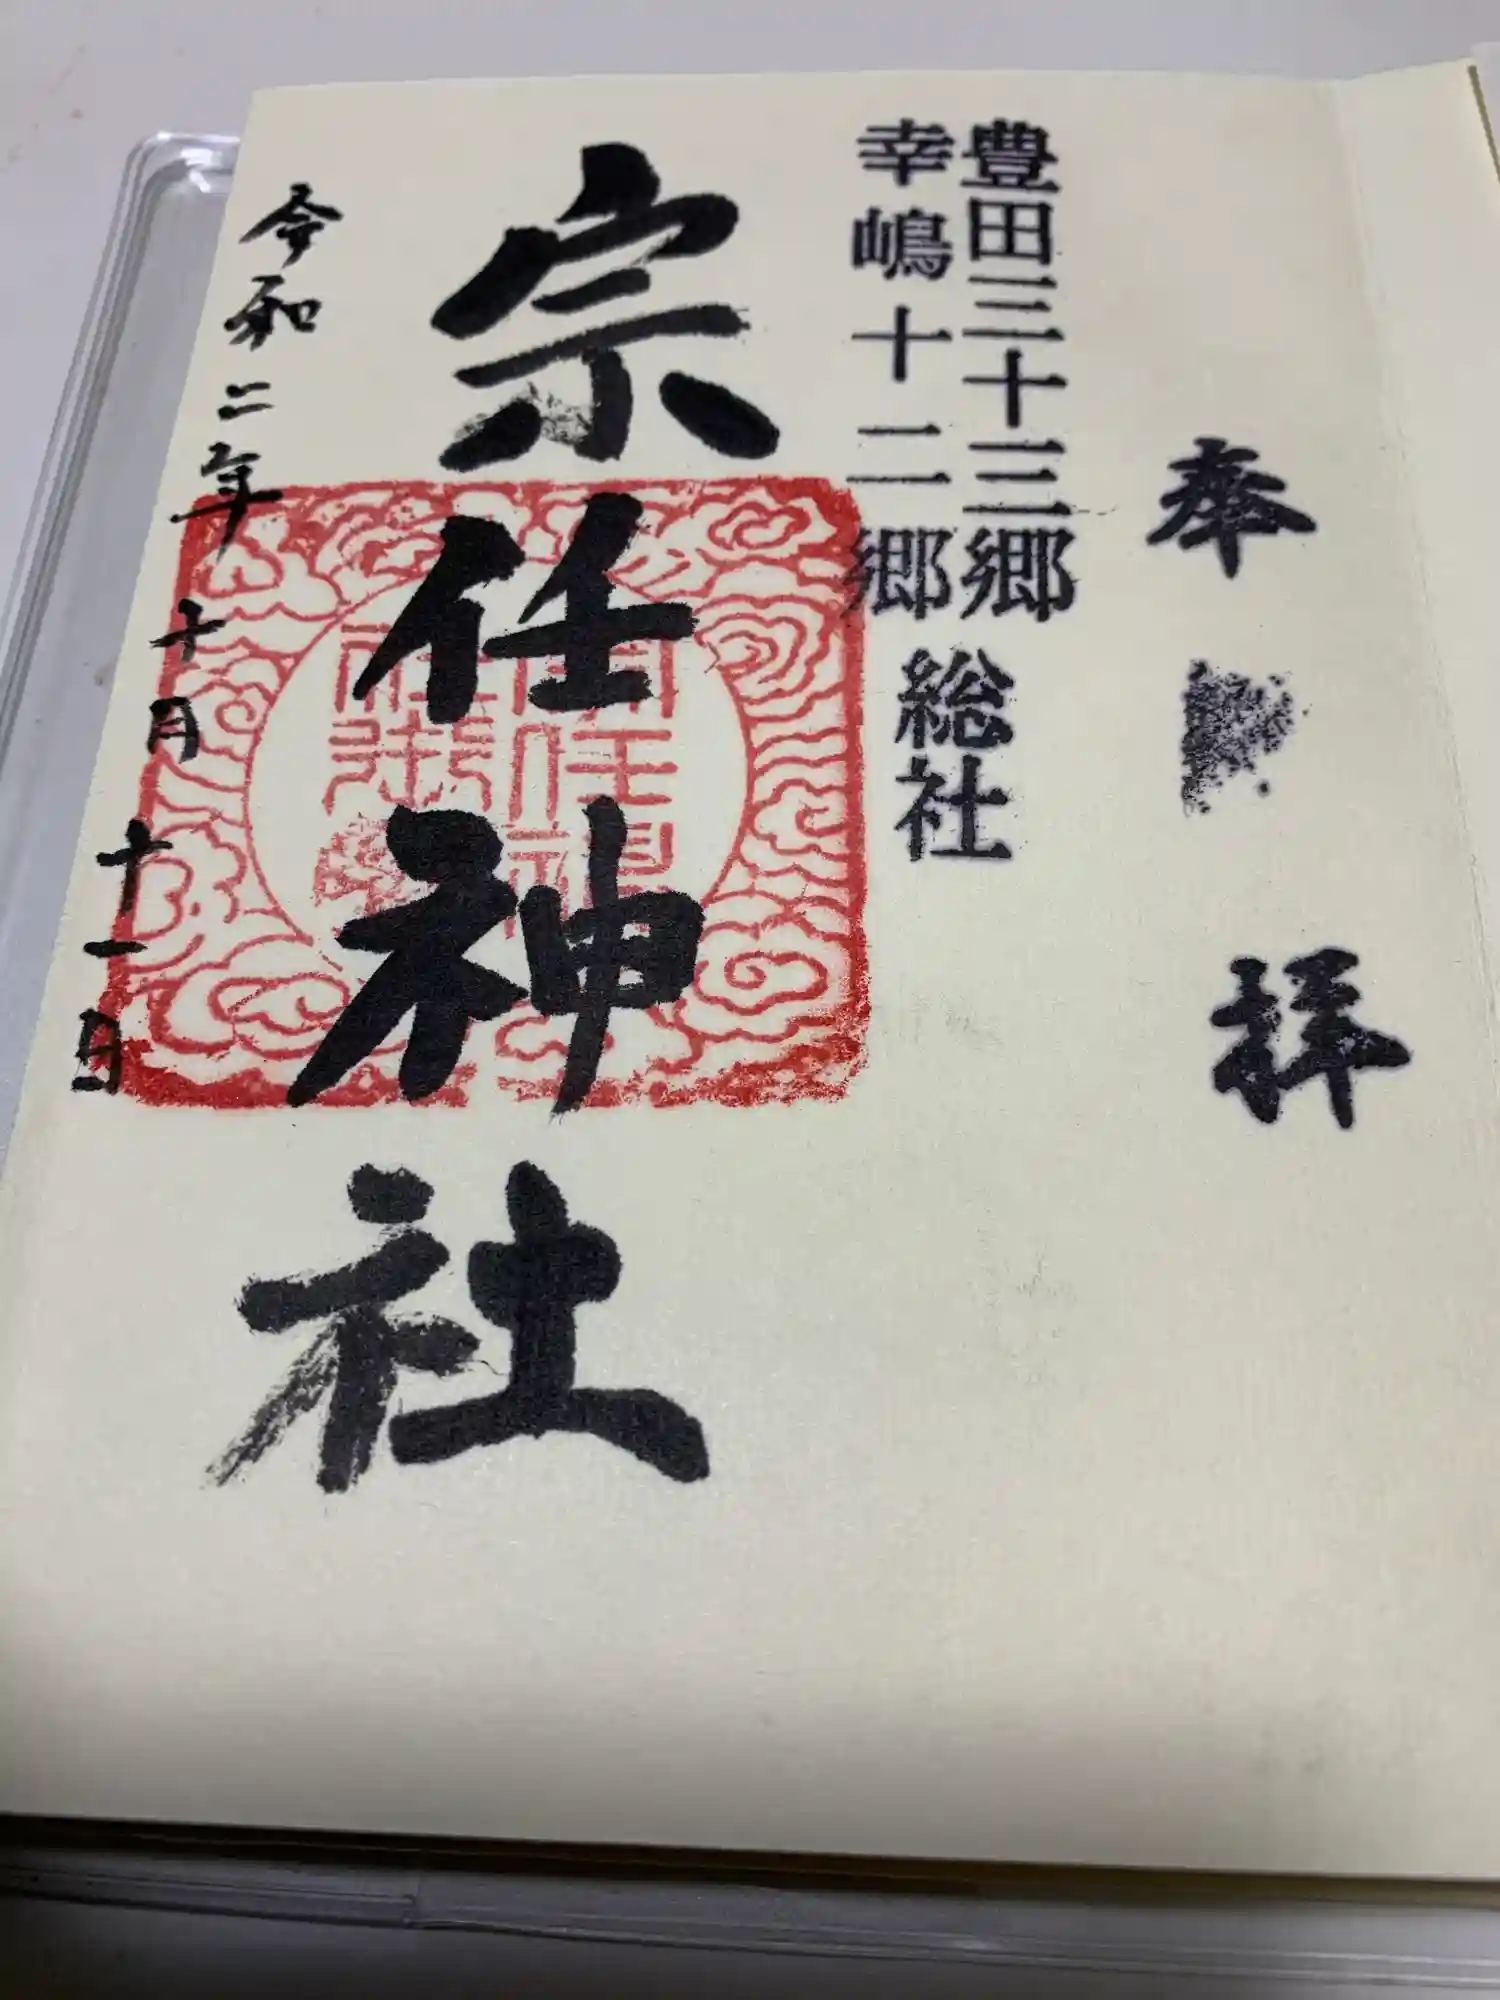 奉拝
豊田三十三郷
幸嶋十二郷
総社
宗任神社
令和二年十月十一日